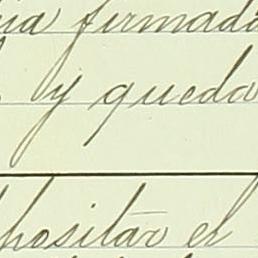 ia firmada
y queda
positar el